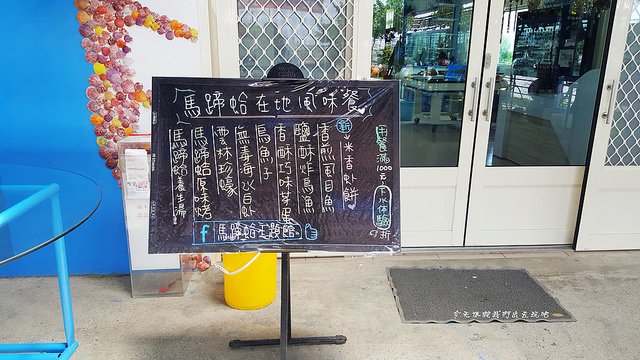 馬蹄蛤在地風味餐
用餐滿1000元
下水体驗
9折!
新
米香虾餅
香煎虱目魚
鹽酥炸烏魚
香酥巧味
烏魚子
無毒海水白虾
雲林珍蠔
馬蹄蛤原味烤
馬蹄蛤養生湯
f 馬蹄蛤主題館